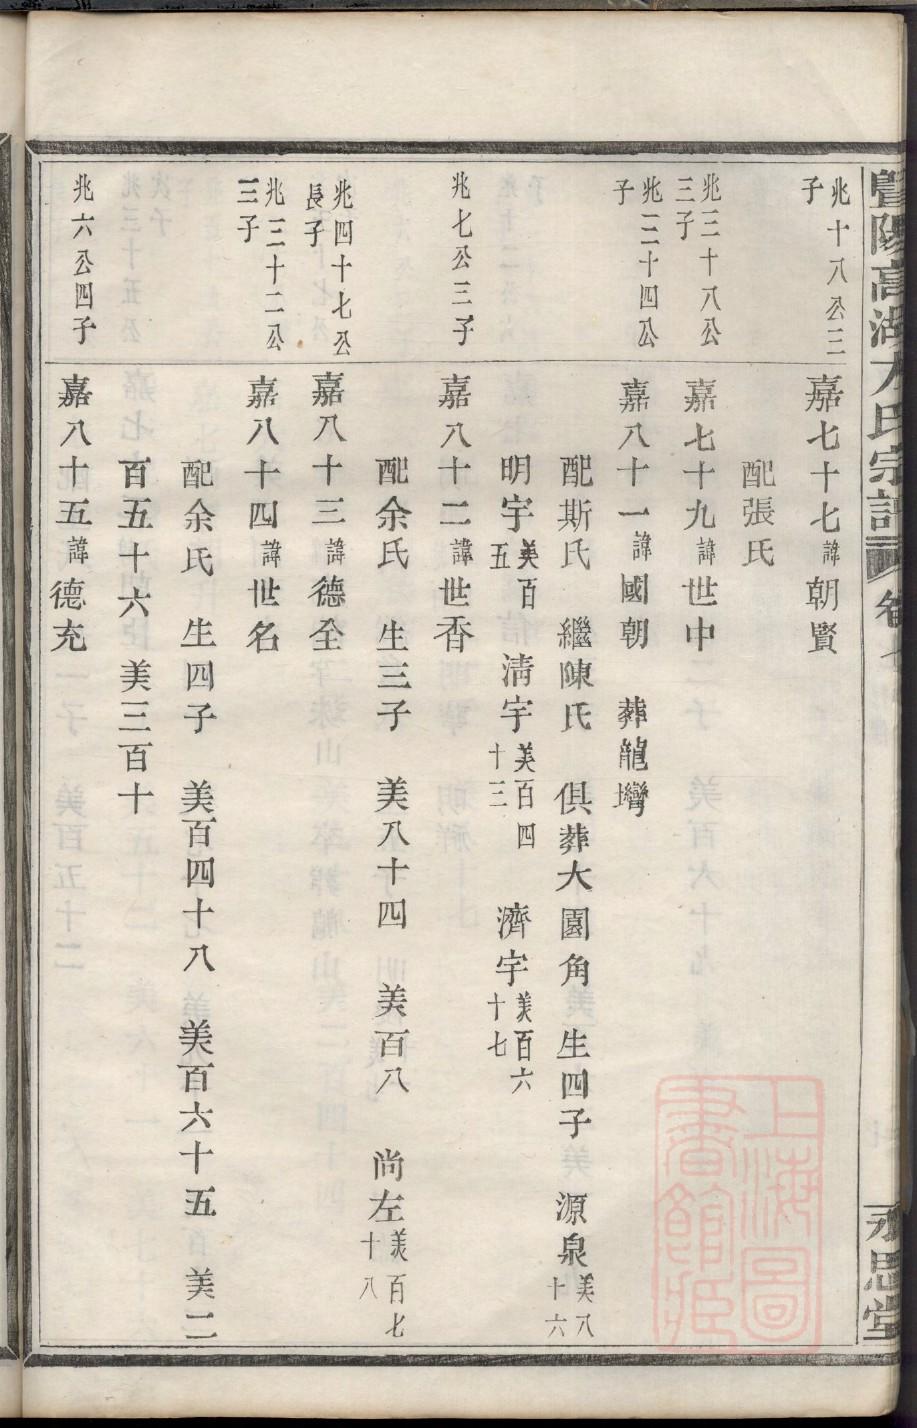 暨陽高湖方氏宗譜 卷七
永思堂
上海圖書館藏
兆十八公三子
嘉七十七諱朝賢
配張氏
兆三十八公三子
嘉七十九諱世中
兆二十四公子
嘉八十一諱國朝 葬龍灣
配斯氏 繼陳氏 俱葬大園角 生四子 源泉美八十六
明宇美百五 淸宇美百四十三 濟宇美百六十七
兆七公三子
嘉八十二諱世香
配余氏 生三子 美八十四 美百八 尚左美百七十八
兆四十七公長子
嘉八十三諱德全
兆三十二公三子
嘉八十四諱世名
配余氏 生四子 美百四十八 美百六十五 美二
百五十六 美三百十
兆六公四子
嘉八十五諱德充